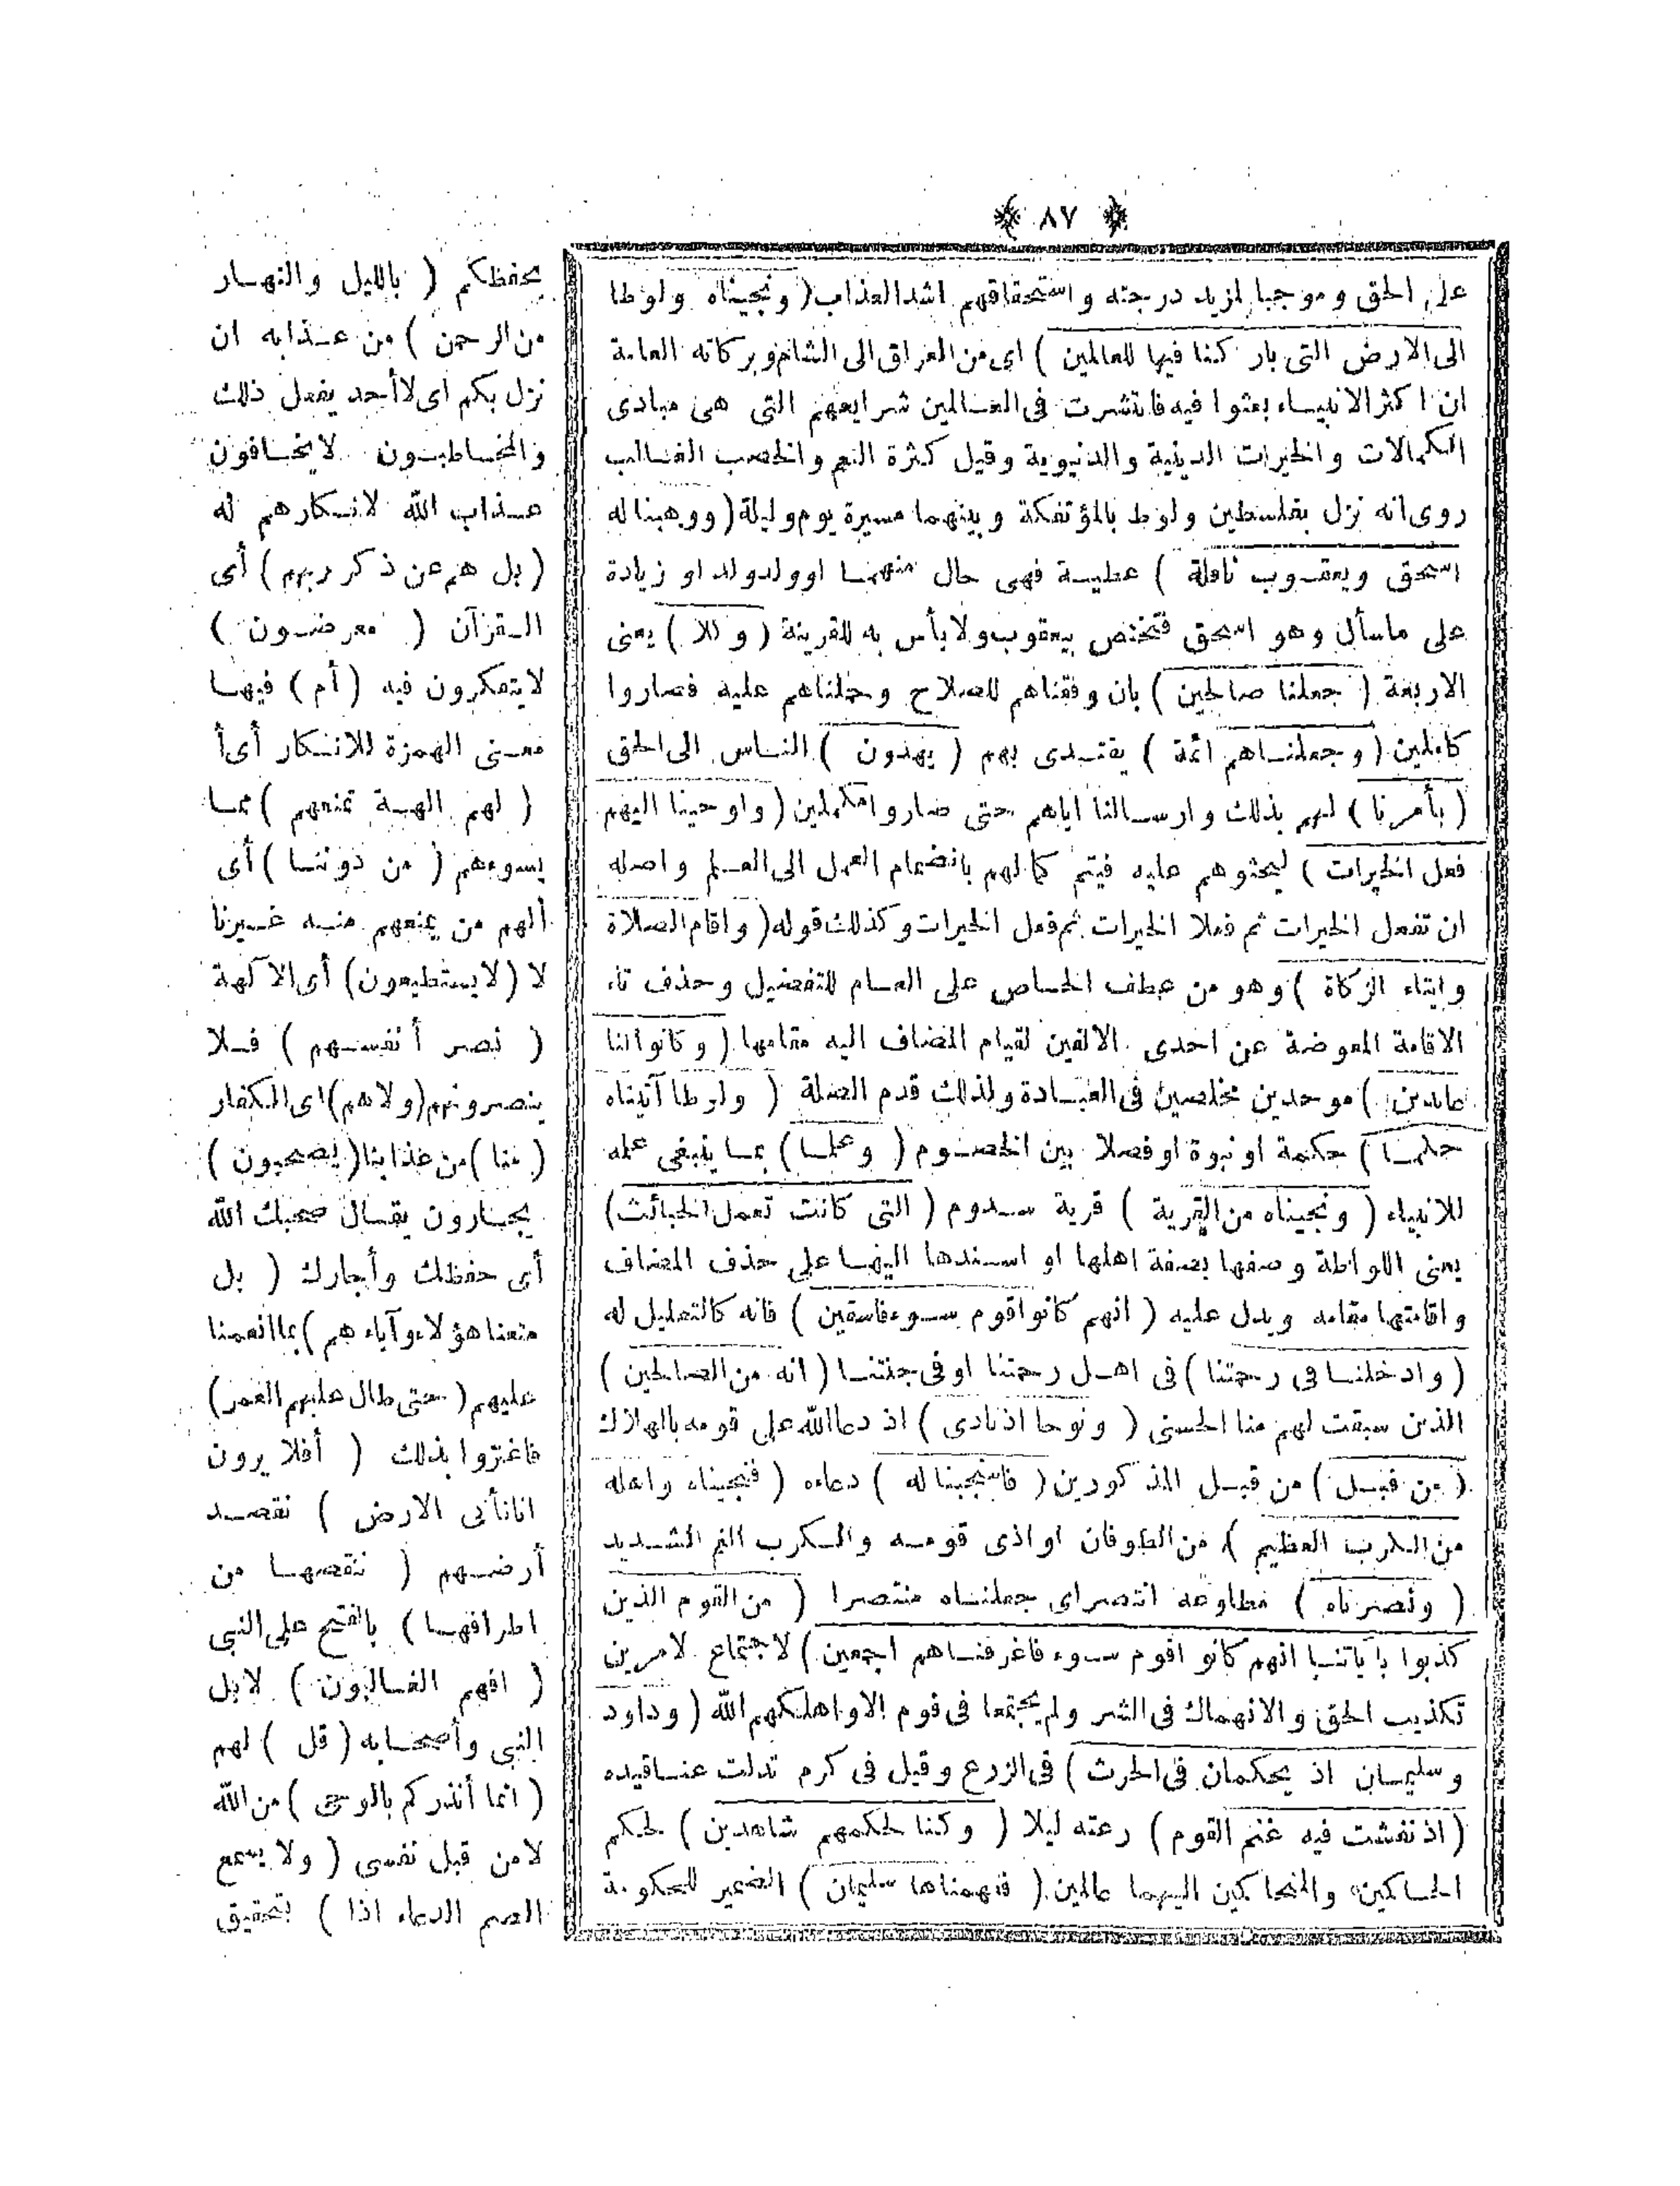 ﴿ ٨٧ ﴾
على الحق وموجبا لمزيد درجته واستحقاقهم اشد العذاب ( ونجيناه ولوطا
الى الارض التى باركنا فيها للعالمين ) اى من العراق الى الشام وبركاته العامة
ان اكثر الانبياء بعثوا فيه فانتشرت فى العالمين شرايعهم التى هى مبادى
الكمالات والخيرات الدينية والدنيوية وقيل كثرة النعم والخصب الغالب
روى انه نزل بفلسطين ولوط بالمؤتفكة وبينهما مسيرة يوم وليلة ( ووهبنا له
اسحق ويعقوب نافلة ) عطية فهى حال منهما او ولد ولد او زيادة
على ماسأل وهو اسحق فتختص بيعقوب ولا بأس به للقرينة ( وكلا ) يعنى
الاربعة ( جعلنا صالحين ) بان وفقناهم للصلاح وحملناهم عليه فصاروا
كاملين ( وجعلناهم ائمة ) يقتدى بهم ( يهدون ) الناس الى الحق
( بأمرنا ) لهم بذلك وارسالنا اياهم حتى صاروا مكملين ( واوحينا اليهم
فعل الخيرات ) ليحثوهم عليه فيتم كمالهم بانضمام العمل الى العلم واصله
ان تفعل الخيرات ثم فعلا الخيرات ثم فعل الخيرات وكذلك قوله ( واقام الصلاة
وايتاء الزكاة ) وهو من عطف الخاص على العام للتفضيل وحذف تاء
الاقامة المعوضة عن احدى الالفين لقيام المضاف اليه مقامها ( وكانوا لنا
عابدين ) موحدين مخلصين فى العبادة ولذلك قدم الصلة ( ولوطا آتيناه
حكما ) حكمة او نبوة او فصلا بين الخصوم ( وعلما ) بما ينبغى علمه
للانبياء ( ونجيناه من القرية ) قرية سدوم ( التى كانت تعمل الخبائث )
يعنى اللواطة وصفها بصفة اهلها او اسندها اليها على حذف المضاف
واقامتها مقامه ويدل عليه ( انهم كانوا قوم سوء فاسقين ) فانه كالتعليل له
( وادخلنا فى رحمتنا ) فى اهل رحمتنا او فى جنتنا ( انه من الصالحين )
الذين سبقت لهم منا الحسنى ( ونوحا اذ نادى ) اذ دعا الله على قومه بالهلاك
( من قبل ) من قبل المذكورين ( فاستجبنا له ) دعاءه ( فنجيناه واهله
من الكرب العظيم ) من الطوفان او اذى قومه والكرب الغم الشديد
( ونصرناه ) مطاوعه انتصر اى جعلناه منتصرا ( من القوم الذين
كذبوا بآياتنا انهم كانوا قوم سوء فاغرقناهم اجمعين ) لاجتماع لامرين
تكذيب الحق والانهماك فى الشر ولم يجتمعا فى قوم الا واهلكهم الله ( وداود
وسليمان اذ يحكمان فى الحرث ) فى الزرع وقيل فى كرم تدلت عناقيده
( اذ نفشت فيه غنم القوم ) رعته ليلا ( وكنا لحكمهم شاهدين ) لحكم
الحاكمين والمتحاكمين اليهما عالمين ( ففهمناها سليمان ) الضمير للحكومة
يحفظكم ( بالليل والنهار
من الرحمن ) من عذابه ان
نزل بكم اى لا أحد يفعل ذلك
والمخاطبون لا يخافون
عذاب الله لانكارهم له
( بل هم عن ذكر ربهم ) أى
القرآن ( معرضون )
لا يتفكرون فيه ( أم ) فيها
معنى الهمزة للانكار أى أ
( لهم الهة تمنعهم ) مما
يسوءهم ( من دوننا ) أى
ألهم من يمنعهم منه غيرنا
لا ( لا يستطيعون ) أى الآلهة
( نصر أنفسهم ) فلا
ينصرونهم ( ولاهم ) اى الكفار
( منا ) من عذابنا ( يصحبون )
يجارون يقال صحبك الله
أى حفظك وأجارك ( بل
متعنا هؤلاء وآباءهم ) بما انعمنا
عليهم ( حتى طال عليهم العمر )
فاغتروا بذلك ( أفلا يرون
انا نأتى الارض ) نقصد
أرضهم ( ننقصها من
اطرافها ) بالفتح على النبى
( افهم الغالبون ) لا بل
النبى وأصحابه ( قل ) لهم
( انما أنذركم بالوحى ) من الله
لا من قبل نفسى ( ولا يسمع
الصم الدعاء اذا ) بتحقيق